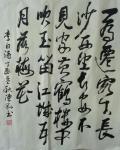 一為遷客去長
沙西望長安不
見家黃鶴樓中
吹玉笛江城五
月落梅花
李白詩丁酉秋書